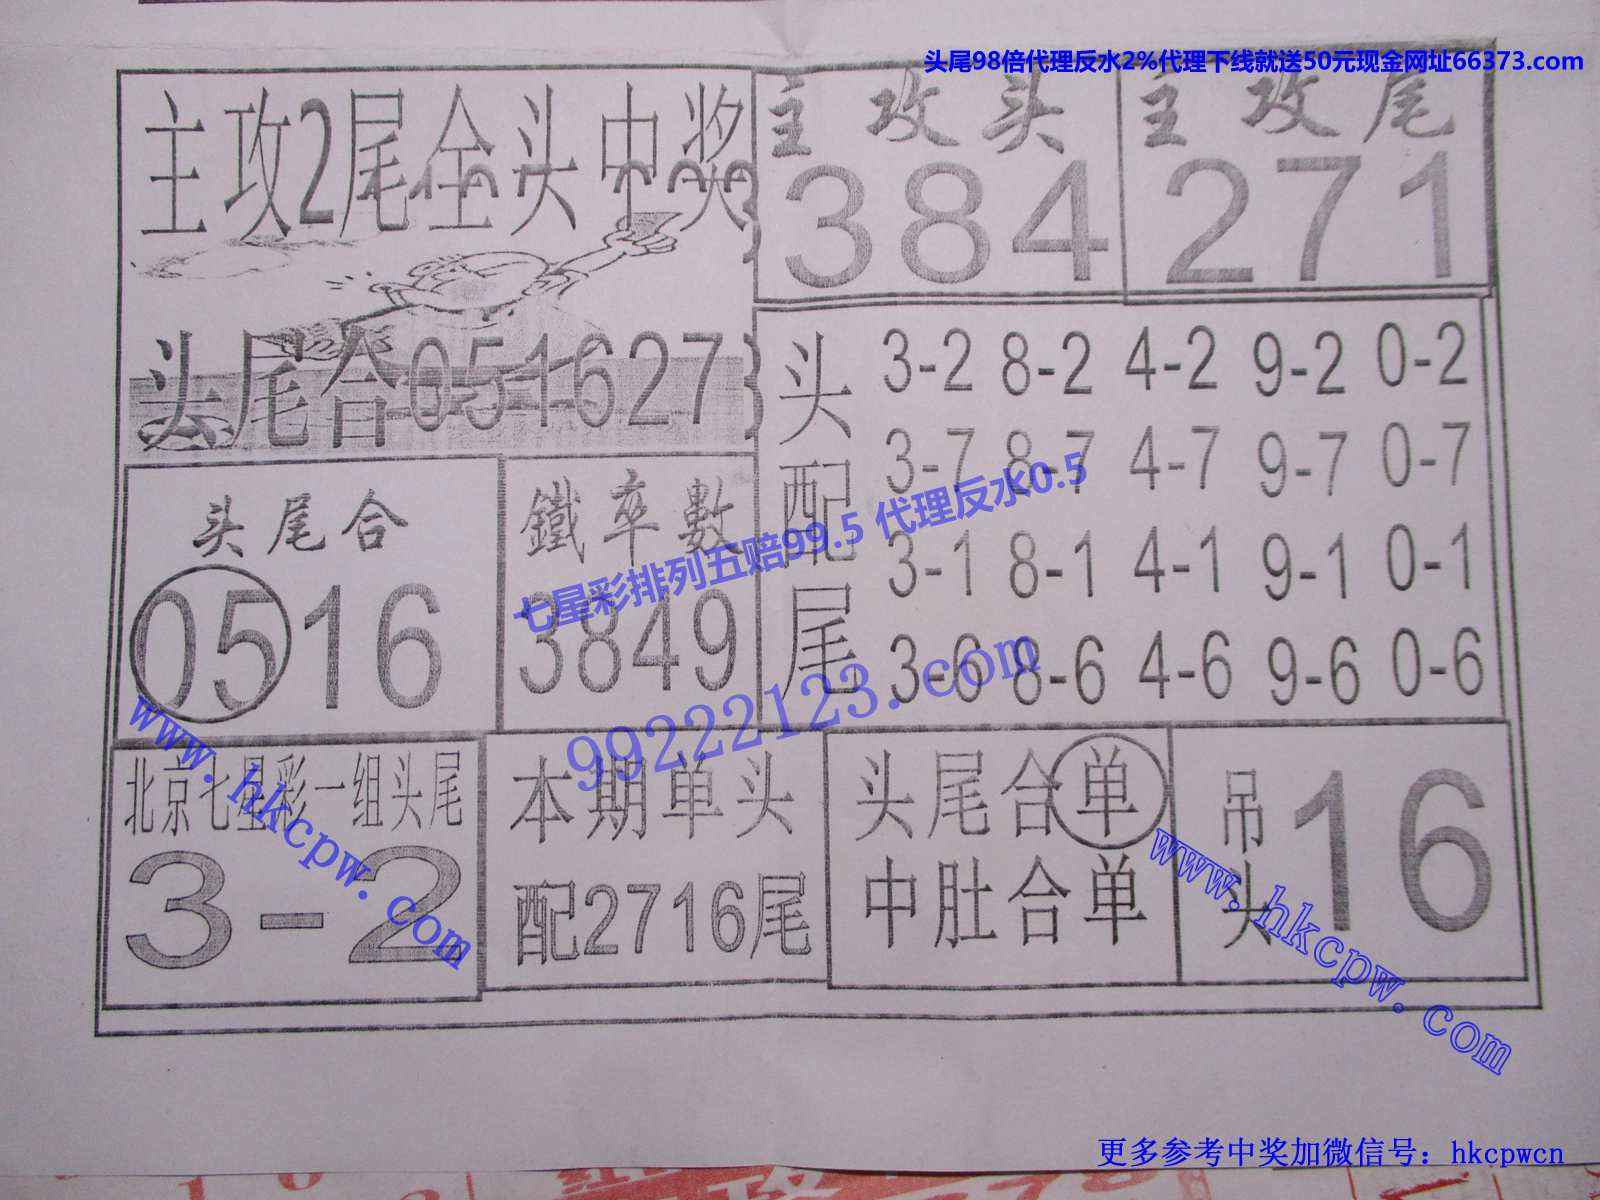 头尾98倍代理反水2%代理下线就送50元现金网址66373.com
主攻2尾全头中奖
主攻头
384
主攻尾
271
头尾合051627
头配尾
3-2 8-2 4-2 9-2 0-2
3-7 8-7 4-7 9-7 0-7
3-1 8-1 4-1 9-1 0-1
3-6 8-6 4-6 9-6 0-6
头尾合
0516
鐵卒數
3849
七星彩排列五赔99.5 代理反水0.5
99222123.com
www.hkcpw.com
北京七星彩一组头尾
3-2
本期单头
配2716尾
头尾合单
中肚合单
吊头16
www.hkcpw.com
更多参考中奖加微信号：hkcpwcn